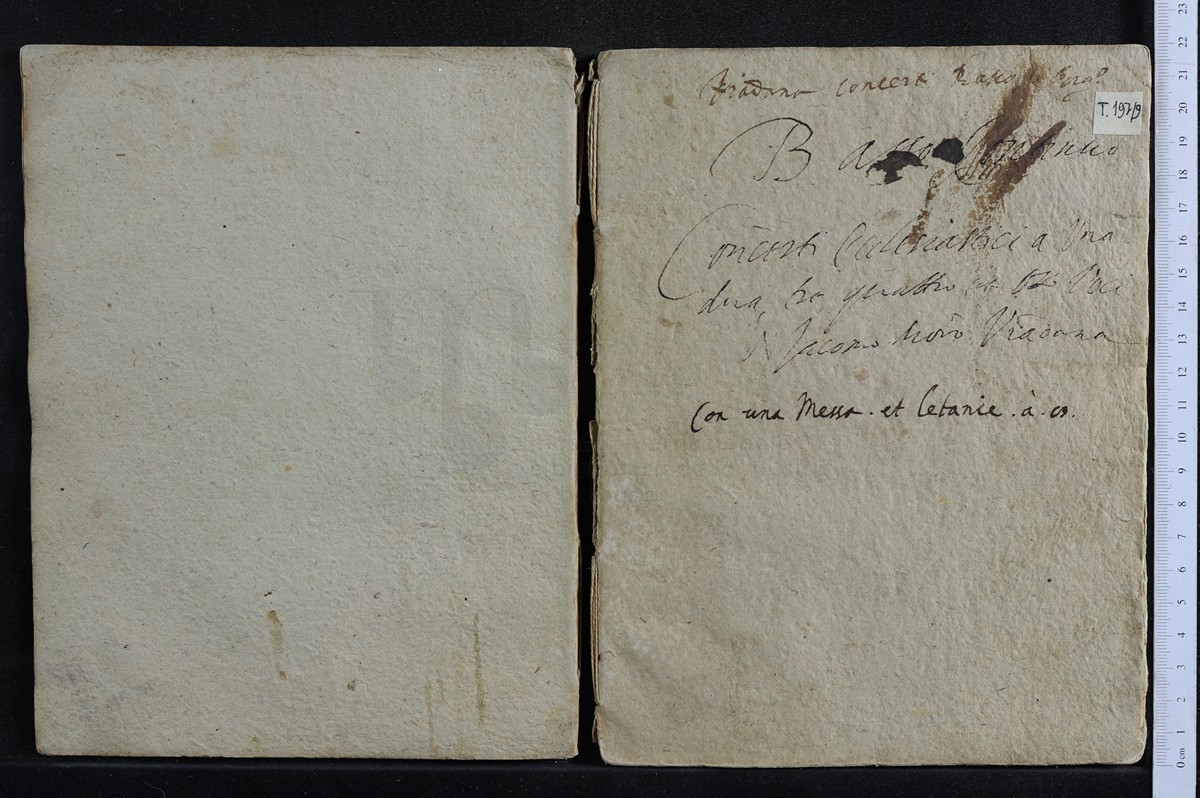 Viadana concert Basso
T. 197/9
Basso Continuo
Concerti Ecclesiastici a Una
dua, tre quattro et Otto Voci
Jacomo Moro Viadana
Con una Messa . et letanie . à .
23
22
21
20
19
18
17
16
15
14
13
12
11
10
9
8
7
6
5
4
3
2
1
0 cm